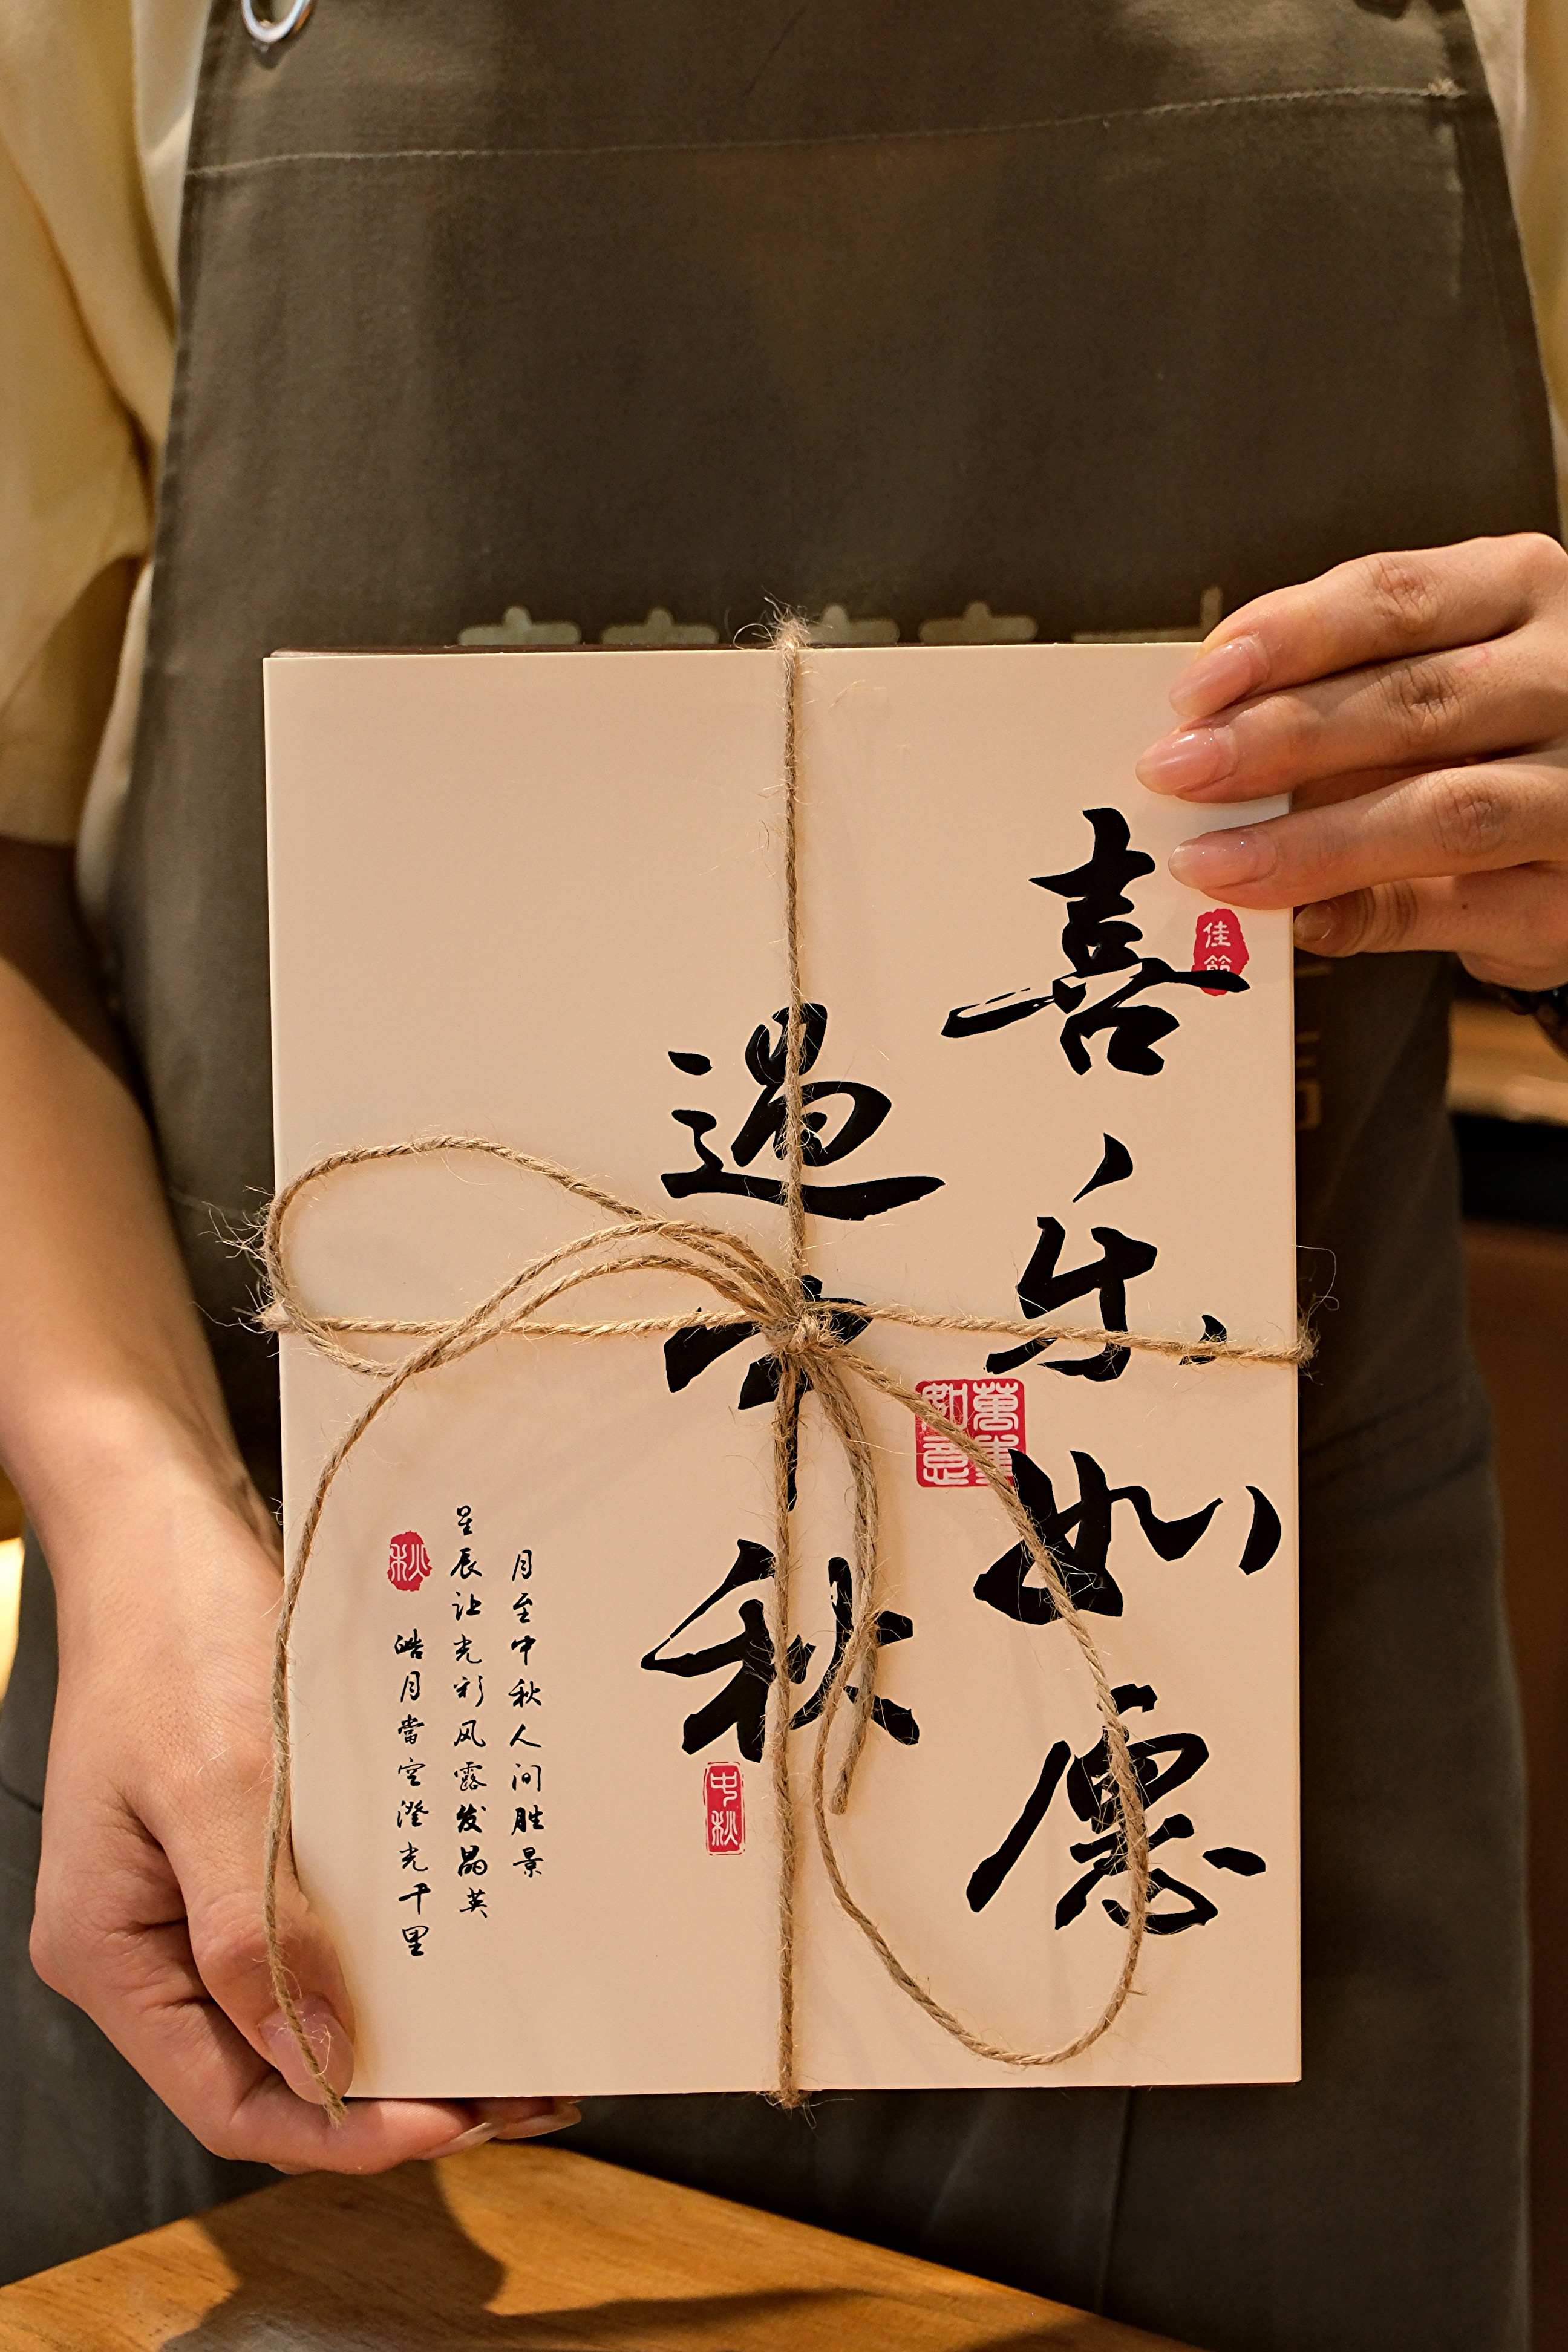 喜乐如愿
佳節
萬事如意
過中秋
中秋
月至中秋人间胜景
星辰让光彩风露发晶英
皓月當空澄光千里
秋